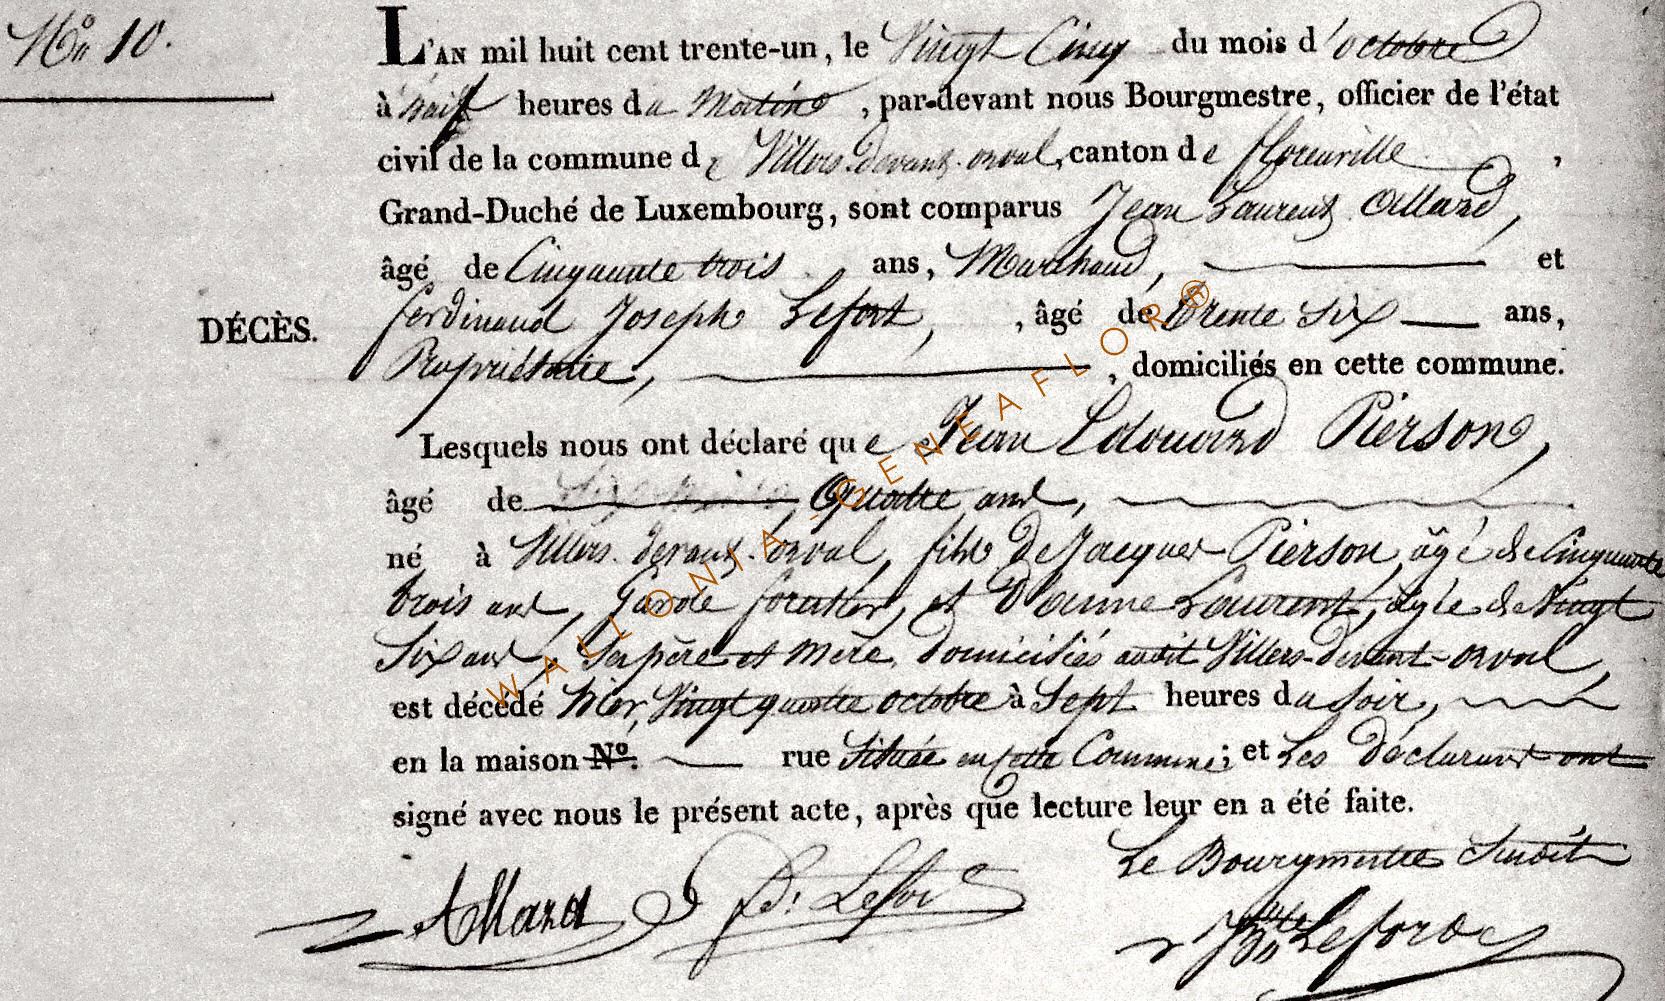 No 10.
L'AN mil huit cent trente-un, le Vingt Cinq du mois d'octobre
à heures du Matin, par-devant nous Bourgmestre, officier de l'état
civil de la commune de Villers-devant-orval, canton de florenville,
Grand-Duché de Luxembourg, sont comparus Jean Laurent Allard,
âgé de Cinquante trois ans, Marchand, et
ferdinand Joseph Lefort, , âgé de trente Six ans,
DÉCÈS.
Propriétaire, , domiciliés en cette commune.
Lesquels nous ont déclaré que Jean Edouard Pierson,
âgé de Quatre ans,
né à Villers-devant-orval, fils de Jacques Pierson, âgé de Cinquante
trois ans, Garde forestier, et d'anne Laurent, âgée de Vingt
Six ans, Ses père et mère, domiciliés audit Villers-devant-orval,
est décédé hier, Vingt quatre octobre à Sept heures du Soir,
en la maison No. rue Située en Cette Commune; et Les déclarans ont
signé avec nous le présent acte, après que lecture leur en a été faite.
Le Bourgmestre Susdit
Allard Lefort
Lefort
WALLONIA - GENEAFLOR ®